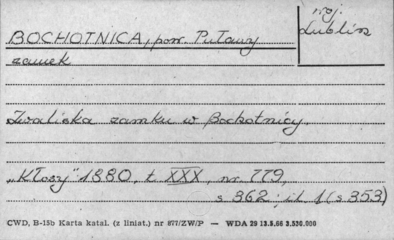 woj.
Lublin
BOCHOTNICA, pow. Puławy
zamek
Zwaliska zamku w Bochotnicy.
„Kłosy" 1880, t. XXX, nr 779,
s 362; il. 1 (s 353)
CWD, B-15b Karta katal. (z liniat.) nr 877/ZW/P — WDA 29 13.5.66 3.530.000